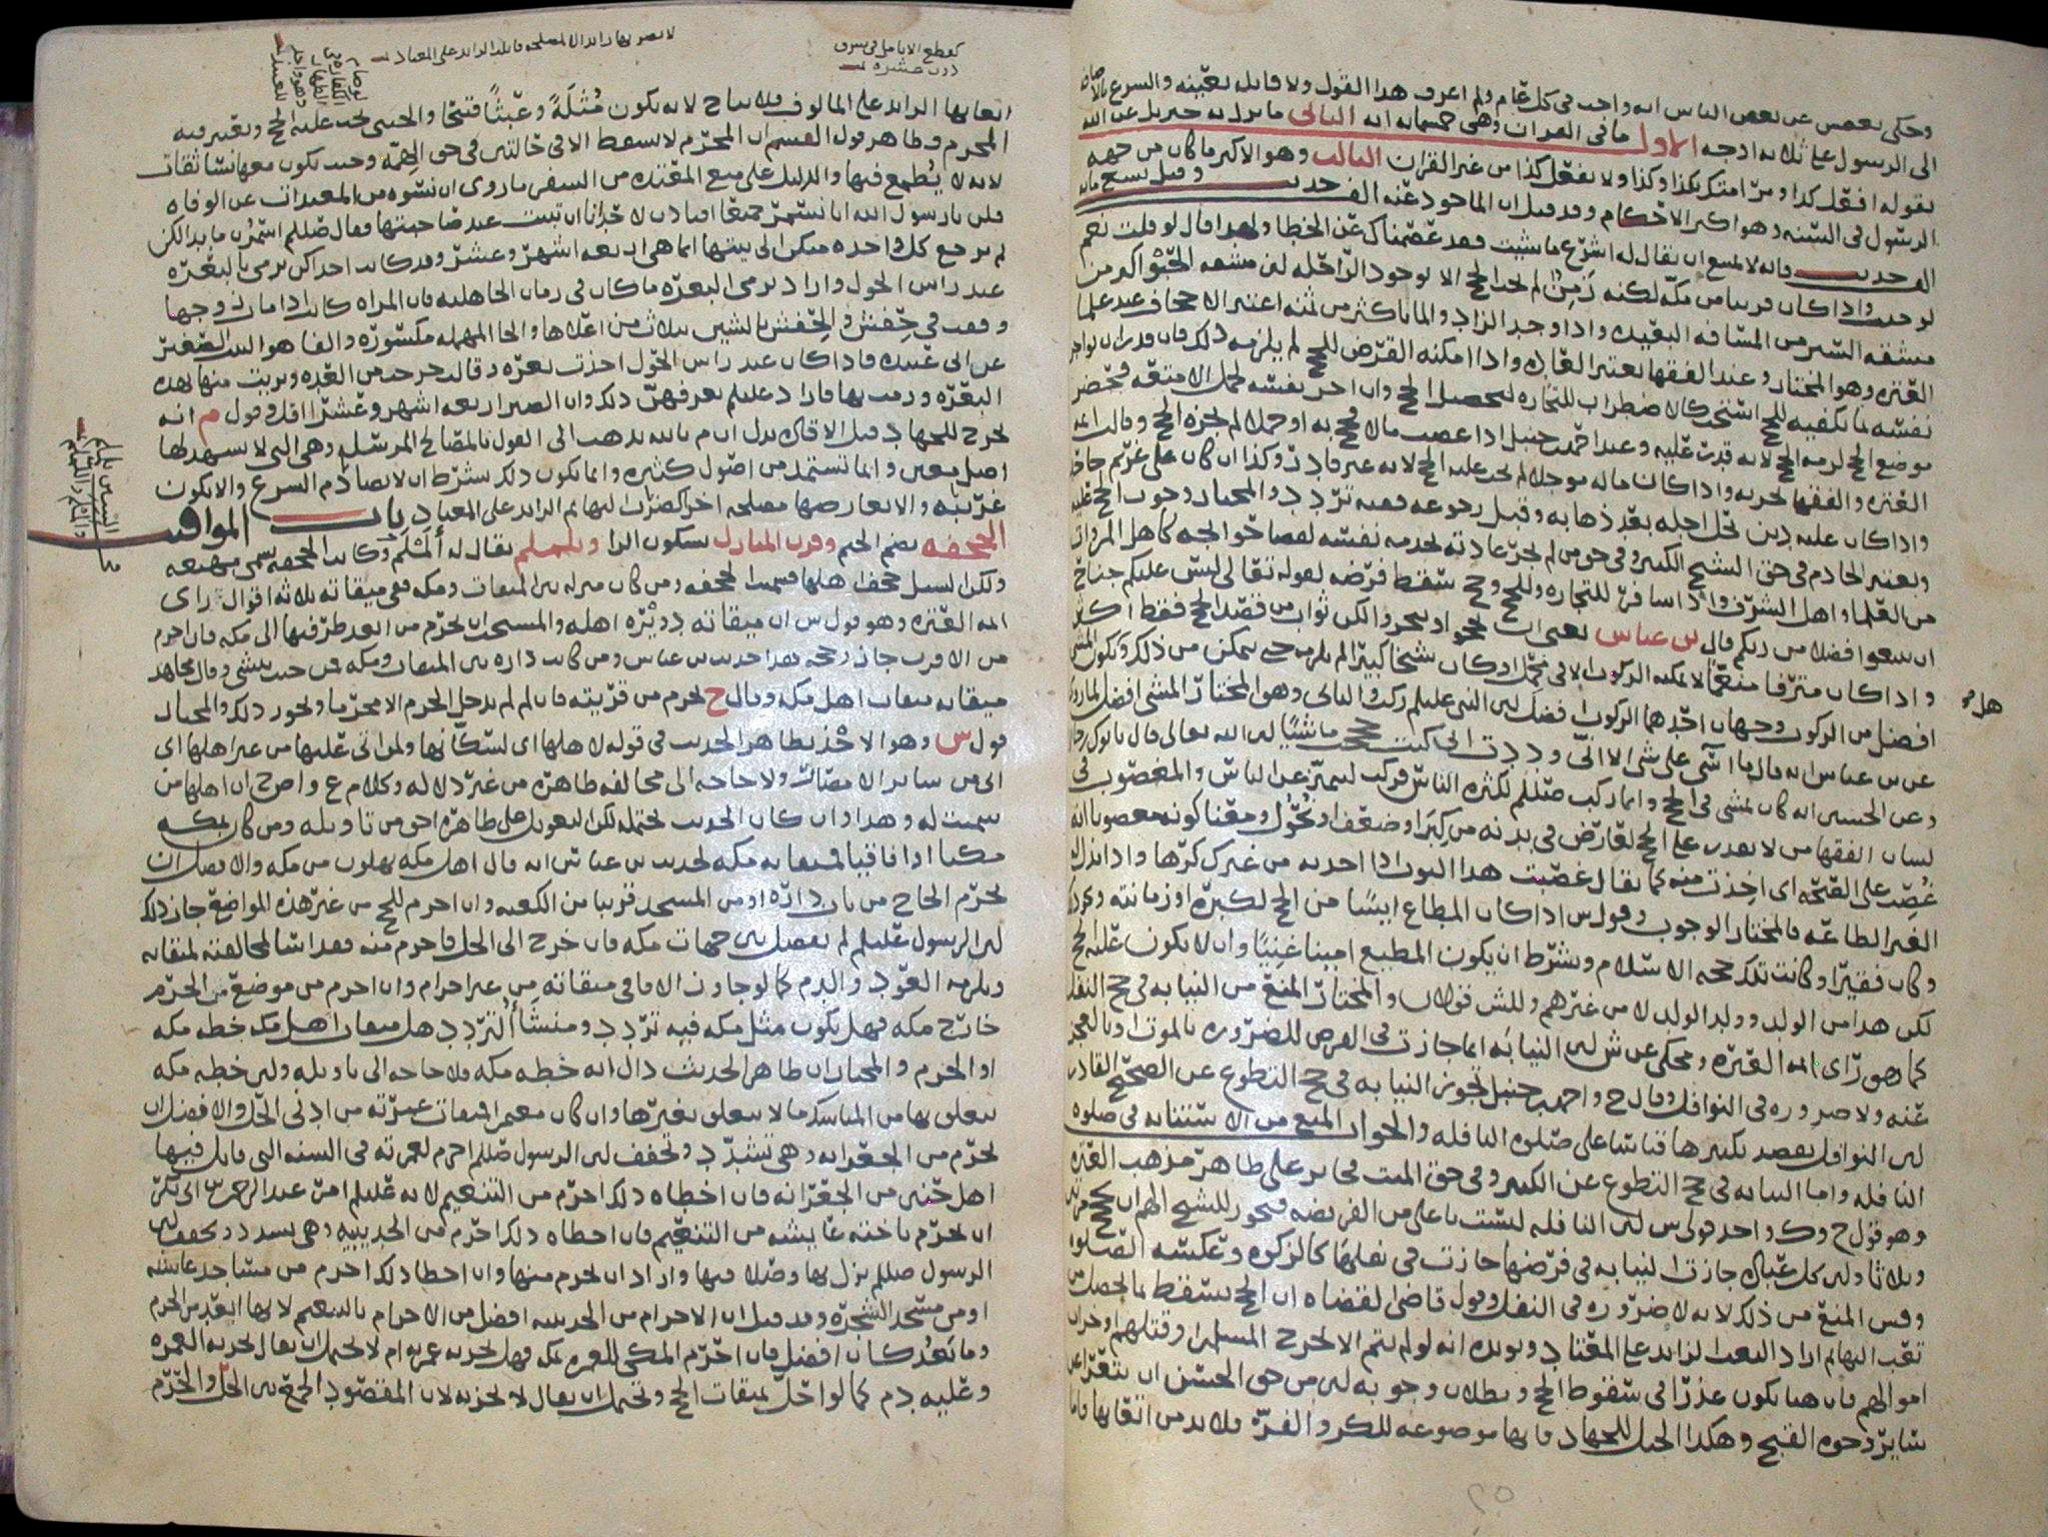 وحكى بعضهم عن بعض الناس انه واجب في كل عام ولم اعرف هذا القول ولا قائله بعينه والشرع
الى الرسول على ثلاثه اوجه الاول ما في القران وهي خمسمائه ايه الثاني ما نزل به جبريل عن الله
بقوله افعل كذا ومر امتك بكذا وكذا ولا تفعل كذا من غير القران الثالث وهو الاكبر ما كان من جهه
الرسول في السنه وهو اكبر الاحكام وقد قيل ان الماخوذ عنه الف حديث وقيل تسع مائه
الف حديث فانه لا يمتنع ان يقال له اشرع ما شيت فقد عصمناك عن الخطا ولهذا قال لو قلت نعم
لوجبت واذا كان قريبا من مكه لكنه زمن لم يجب الحج الا بوجود الراحله لان مشقه الحبو اكبر من
مشقه السير من المسافه البعيده واذا وجد الزاد والماء باكثر من ثمنه اعتبر الاجحاف عند علما
العتره وهو المختار وعند الفقها يعتبر العاده واذا امكنه القرض للحج لم يلزمه ذلك فان قدر ان يواجر
نفسه بما يكفيه للحج استحب كالاضطراب للتجاره لتحصيل الحج وان اجر نفسه لحمل الامتعه فحضر
موضع الحج لزمه الحج لانه قدرت عليه وعند احمد بن حنبل اذا غصب مالا فحج به او جملا لم يجزه الحج وقالت ائمه
العتره والفقها يجزيه واذا كان ماله موجلا لم يجب عليه الحج لانه غير قادر وكذا ان كان على غريم جاحد
واذا كان عليه دين يحل اجله بعد ذهابه وقبل رجوعه ففيه تردد والمختار وجوب الحج عليه
ويعتبر الخادم في حق الشيخ الكبير وفي حق من لم تجر عادته بخدمه نفسه لقضا حوائجه كاهل المروات
من العلما واهل الشرف واذا سافر للتجاره وللحج وحج سقط فرضه لقوله تعالى ليس عليكم جناح
ان تبتغوا فضلا من ربكم قال بن عباس
واذا كان مترفا منعما لا يمكنه الركوب الا في محمل او كان شيخا كبيرا لم يلزمه حتى يتمكن من ذلك وتكون المشي
افضل من الركوب وجهان احدهما الركوب افضل لان النبي عليلم ركب والثاني وهو المختار المشي افضل لما روي
عن بن عباس انه قال ما اسى على شي الا اني وددت اني كنت حججت ماشيا لان الله تعالى قال ياتوك رجالا
وعن الحسن انه كان يمشي في الحج وانما ركب صللم لكثره الناس فركب ليتميز عن الناس والمغصوب في
لسان الفقها من لا يقدر على الحج لعارض في بدنه من كبر او ضعف او نحول ومعنا كونه مغصوبا انه
غصب على الصحه اي اخذت منه كما يقال غصبت هذا الثوب اذا اخذته من غيرك كرها واذا بذل له
الغير الطاعه فالمختار الوجوب وقول س اذا كان المطاع ايسا من الحج لكبره او زمانته
وكان فقيرا وكانت تلك حجه الاسلام ويشترط ان يكون المطيع امينا غنيا وان لا يكون عليه حج
لكن هذا من الولد وولد الولد لا من غيرهم وللش قولان والمختار المنع من النيابه في حج النفل
كما هو راي ائمه العتره ومحكي عن ش لان النيابه انما جازت في الفرض للضروره بالموت او بالعجز
عنه ولا ضروره في النوافل وقال ح واحمد بن حنبل تجوز النيابه في حج التطوع عن الصحيح القادر
لان النوافل يقصد تكثيرها قياسا على صلوه النافله والجواب المنع من الاستنابه في صلوه
النافله واما النيابه في حج التطوع عن الكبير وفي حق الميت فجائز على ظاهر مذهب العتره
وهو قول ح وك واحد قولي س لان النافله ليست باعلى من الفريضه فيجوز للشيخ الهم ان يحج مرتين
وثلاثا ولان كل عباده جازت النيابه في فرضها جازت في نفلها كالزكوه وعكسه الصلوه
وقس المنع من ذلك لانه لا ضروره في النفل وقول قاضي القضاه ان الحج يسقط بما يحصل من
تعب البهائم اراد التعب الزائد على المعتاد ويويده انه لو لم يتم الا بخرج المسلمين او قتلهم او خراب
اموالهم فان هنا يكون عذرا في سقوط الحج وبطلان وجوبه لان من حق الحسن ان يتعرا عن
سائر وجوه القبح وهكذا الخيل للجهاد فانها موضوعه للكر والفر فلا بد من اتعابها فاما
هل
كقطع الانامل في سرف
دون عشره
لا تضر بها زائد الالمصلحه فاتلف الزائد على المعتاد
اتعابها الزائد على المالوف فلا يباح لانه يكون مثله وعبثا قبيحا والخنثى يجب عليه الحج ويعتبر فيه
المحرم وظاهر قول القسم ان المحرم لا يسقط الا في حالتين في حق الهمه وحيث يكون معها نسا ثقات
لانه لا يطمع فيها والدليل على منع المعتده من السفر ما روي ان نسوه من المعتدات عن الوفاه
قلن يا رسول الله انا نستمر جميعا افتاذن لاحدانا ان تبيت عند صاحبتها فقال صللم استمرن ما بدا لكن
ثم ترجع كل واحده منكن الى بيتها انما هي اربعه اشهر وعشر وقد كانت احداكن ترمي بالبعره
عند راس الحول واراد برمي البعره ما كان في زمان الجاهليه فان المراه كانت اذا مات زوجها
وقعدت في حفش والحفش بالشين بثلاث من اعلاها والحا المهمله مكسوره والفا هو البيت الصغير
فاذا كان عند راس الحول اخذت بعره وقالت خرجت من العده وبريت منها بهذه
البعره ورمت بها فاراد عليلم يعرفهن ذلك وان الصبر اربعه اشهر وعشرا اقل وقول م انه
يخرج للجهاد قيل الاقارب يدل ان م بالله يذهب الى القول بالمصالح المرسله وهي التي لا يشهد لها
اصل معين وانما تستمد من اصول كثيره وانما يكون ذلك بشرط ان لا يصادم الشرع والا يكون
غريبه والا يعارضها مصلحه اخرى كضراب البهائم الزائد على المعتاد باب المواقيت
الجحفه بضم الجيم وقرن المنازل بسكون الرا ويلملم يقال له ألملم وكانت الجحفه تسمى مهيعه
ولكن السيل جحف اهلها فسميت الجحفه ومن كان منزله بين الميقات ومكه ففي ميقاته ثلاثه اقوال راي
ائمه العتره وهو قول س ان ميقاته دويره اهله والمستحب ان يحرم من ابعد طرفيها الى مكه فان احرم
من الاقرب جاز وحجه هذا حديث بن عباس ومن كانت داره بين الميقات ومكه فمن حيث ينشي وقال مجاهد
ميقاته ميقات اهل مكه وقال ح يحرم من قريته فان لم لم يدخل الحرم الا محرما ويجوز ذلك والمختار
قول س وهو الاخذ بظاهر الحديث في قوله لاهلها اي لسكانها ولمن اتى عليها من غير اهلها اي
اتى من سائر الامصار ولا حاجه الى مخالفه ظاهره من غير دلاله وكلام ع واضح ان اهلها من
سميت له وهذا وان كان الحديث يحتمله لكن التعويل على ظاهره احق من تاويله ومن كان بمكه
مكيا او افاقيا فميقاته مكه لحديث بن عباس انه قال اهل مكه يهلون من مكه والافضل ان
يحرم الحاج من باب داره او من المسجد قريبا من الكعبه وان احرم للحج من غير هذه المواضع جاز ذلك
لان الرسول عليلم لم يفصل بين جهات مكه فان خرج الى الحل فاحرم منه فقد اسا لمخالفته لميقاته
ويلزمه العود والدم كما لو جاوز الافاقي ميقاته من غير احرام وان احرم من موضع من الحرم
خارج مكه فهل يكون مثل مكه فيه تردد ومنشا التردد هل ميقات اهل مكه خطه مكه
او الحرم والمختار ان ظاهر الحديث دال انه خطه مكه فلا حاجه الى تاويله ولان خطه مكه
يتعلق بها من المناسك ما لا يتعلق بغيرها وان كان معتمرا فميقات عمرته من ادنى الحل والافضل ان
يحرم من الجعرانه وهي تشدد وتخفف لان الرسول صللم احرم لعمرته في السنه التي قاتل فيها
اهل حنين من الجعرانه فان اخطاه ذلك احرم من التنعيم لانه عليلم امر عبد الرحمن بن ابي بكر
ان يحرم باخته عايشه من التنعيم فان اخطاه ذلك احرم من الحديبيه وهي تشدد وتخفف لان
الرسول صللم نزل بها وصلا فيها واراد ان يحرم منها وان اخطا ذلك احرم من مساجد عايشه
او من مسجد الشجره وقد قيل ان الاحرام من الحديبيه افضل من الاحرام بالتنعيم لانها ابعد من الحرم
وما بعد كان افضل فان احرم المكي للعمره بمكه فهل تجزيه عمرته ام لا يحتمل ان يقال تجزيه العمره
وعليه دم كما لو اخل بميقات الحج ويحتمل ان يقال لا تجزيه لان المقصود الجمع بين الحل والحرم